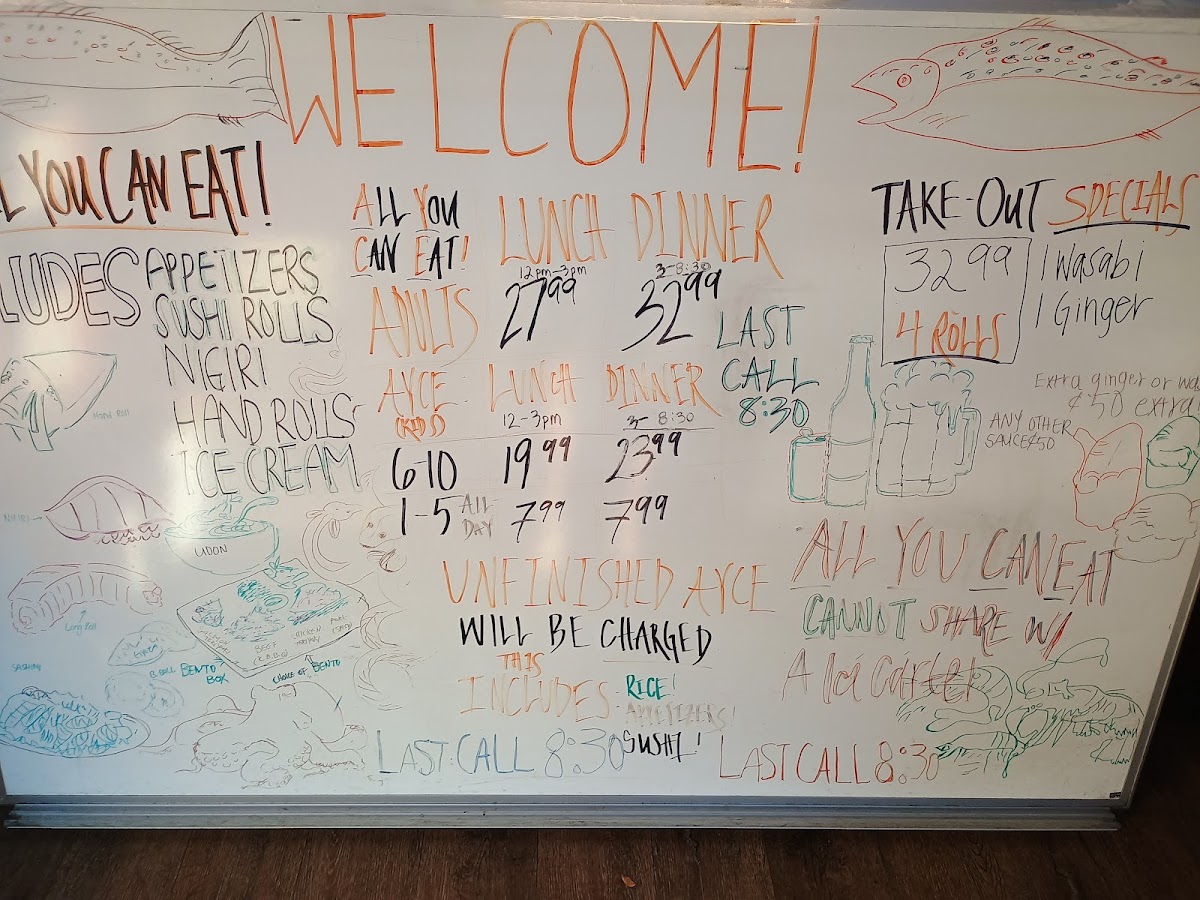 WELCOME!
LL YOU CAN EAT!
LUDES
APPETIZERS
SUSHI ROLLS
NIGIRI
HAND ROLLS
ICE CREAM
Hand Roll
NIGIRI
UDON
Long Roll
SASHIMI
BENTO
BOX
CHOICE OF BENTO
BEEF
CHICKEN
ALL YOU
CAN EAT!
LUNCH DINNER
12pm-3pm 3-8:30
ADULTS 27.99 32.99
AYCE LUNCH DINNER
(KIDS) 12-3pm 3-8:30
6-10 19.99 23.99
1-5 ALL DAY 7.99 7.99
LAST
CALL
8:30
UNFINISHED AYCE
WILL BE CHARGED
THIS
INCLUDES RICE!
APPETIZERS!
SUSHI!
LAST CALL 8:30
TAKE-OUT SPECIALS
32.99
4 ROLLS
1 Wasabi
1 Ginger
Extra ginger or wa
¢50 extra
ANY OTHER
SAUCE ¢50
ALL YOU CAN EAT
CANNOT SHARE W/
A lá carte!
LAST CALL 8:30